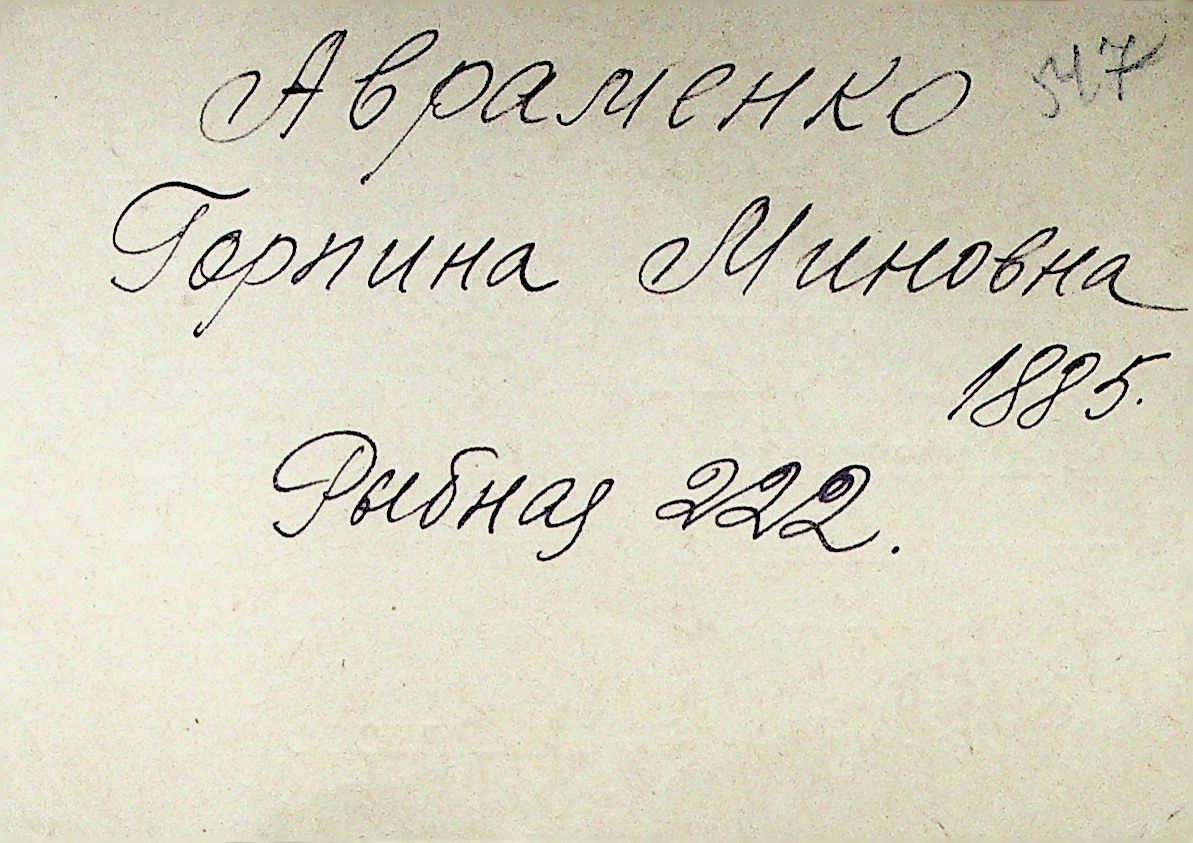 Авраменко 547
Горпина Миновна
1885.
Рыбная 222.